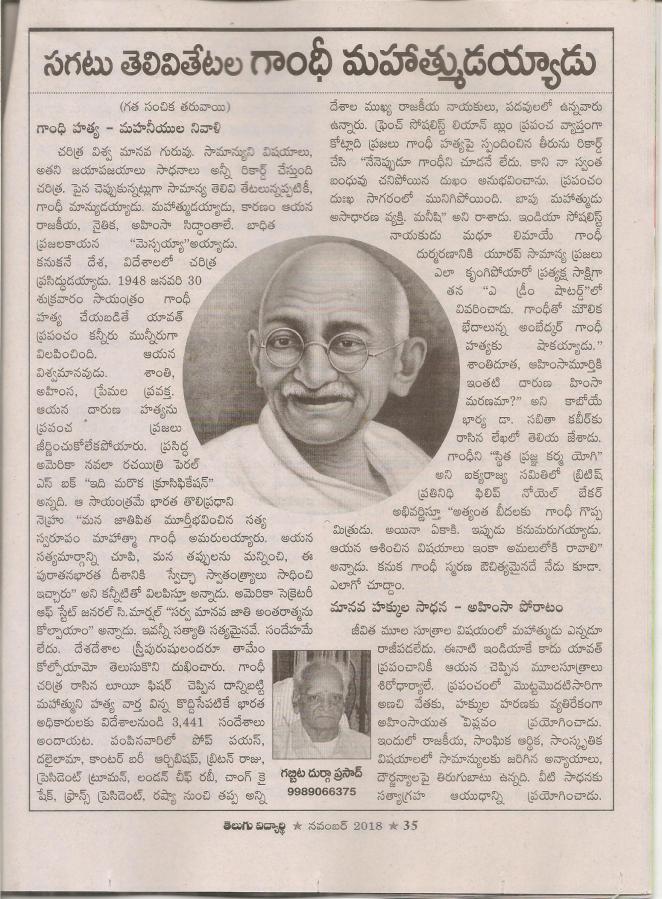 సగటు తెలివితేటల గాంధీ మహాత్ముడయ్యాడు
(గత సంచిక తరువాయి)
గాంధి హత్య - మహనీయుల నివాళి
చరిత్ర విశ్వ మానవ గురువు. సామాన్యుని విషయాలు,
అతని జయాపజయాలు సాధనాలు అన్నీ రికార్డ్ చేస్తుంది
చరిత్ర. పైన చెప్పుకున్నట్లుగా సామాన్య తెలివి తేటలున్నప్పటికీ,
గాంధీ మాన్యుడయ్యాడు. మహాత్ముడయ్యాడు. కారణం ఆయన
రాజకీయ, నైతిక, అహింసా సిద్ధాంతాలే. బాధిత
ప్రజలకాయన "మెస్సయ్యా"అయ్యాడు.
కనుకనే దేశ, విదేశాలలో చరిత్ర
ప్రసిద్ధుడయ్యాడు. 1948 జనవరి 30
శుక్రవారం సాయంత్రం గాంధీ
హత్య చేయబడితే యావత్
ప్రపంచం కన్నీరు మున్నీరుగా
విలపించింది. ఆయన
విశ్వమానవుడు. శాంతి,
అహింస, ప్రేమల ప్రవక్త.
ఆయన దారుణ హత్యను
ప్రపంచ ప్రజలు
జీర్ణించుకోలేకపోయారు. ప్రసిద్ధ
అమెరికా నవలా రచయిత్రి పెరల్
ఎస్ బక్ "ఇది మరొక క్రూసిఫికేషన్"
అన్నది. ఆ సాయంత్రమే భారత తొలిప్రధాని
నెహ్రు "మన జాతిపిత మూర్తీభవించిన సత్య
స్వరూపం మాహాత్మా గాంధీ అమరులయ్యారు. ఆయన
సత్యమార్గాన్ని చూపి, మన తప్పులను మన్నించి, ఈ
పురాతనభారత దీశానికి స్వేచ్ఛా స్వాతంత్ర్యాలు సాధించి
ఇచ్చారు" అని కన్నీటితో విలపిస్తూ అన్నాడు. అమెరికా సెక్రెటరీ
ఆఫ్ స్టేట్ జనరల్ సి.మార్షల్ "సర్వ మానవ జాతి అంతరాత్మను
కోల్పాయాం" అన్నాడు. ఇవన్నీ సత్యాతి సత్యమైనవే. సందేహమే
లేదు. దేశదేశాల స్త్రీపురుషులందరూ తామేం
కోల్పోయామో తెలుసుకొని దుఖించారు. గాంధీ
చరిత్ర రాసిన లూయీ ఫిషర్ చెప్పిన దాన్నిబట్టి
మహాత్ముని హత్య వార్త విన్న కొద్దిసేపటికే భారత
అధికారులకు విదేశాలనుండి 3,441 సందేశాలు
అందాయట. పంపినవారిలో పోప్ పయస్,
దలైలామా, కాంటర్ బరీ ఆర్చిబిషప్, బ్రిటన్ రాజు,
ప్రెసిడెంట్ ట్రూమన్, లండన్ చీఫ్ రబీ, చాంగ్ కై
షేక్, ఫ్రాన్స్ ప్రెసిడెంట్, రష్యా నుంచి తప్ప అన్ని
గబ్బిట దుర్గా ప్రసాద్
9989066375
దేశాల ముఖ్య రాజకీయ నాయకులు, పదవులలో ఉన్నవారు
ఉన్నారు. ఫ్రెంచ్ సోషలిస్ట్ లియాన్ బ్లుం ప్రపంచ వ్యాప్తంగా
కోట్లాది ప్రజలు గాంధీ హత్యపై స్పందించిన తీరును రికార్డ్
చేసి "నేనెప్పుడూ గాంధీని చూడనే లేదు. కాని నా స్వంత
బంధువు చనిపోయిన దుఖం అనుభవించాను. ప్రపంచం
దుఃఖ సాగరంలో మునిగిపోయింది. బాపు మహాత్ముడు
అసాధారణ వ్యక్తి. మనీషి" అని రాశాడు. ఇండియా సోషలిస్ట్
నాయకుడు మధూ లిమాయే గాంధీ
దుర్మరణానికి యూరప్ సామాన్య ప్రజలు
ఎలా కృంగిపోయారో ప్రత్యక్ష సాక్షిగా
తన "ఎ డ్రీం షాటర్డ్"లో
వివరించాడు. గాంధీతో మౌలిక
భేదాలున్న అంబేద్కర్ గాంధీ
హత్యకు షాకయ్యాడు."
శాంతిదూత, ఆహింసామూర్తికి
ఇంతటి దారుణ హింసా
మరణమా?" అని కాబోయే
భార్య డా. సవితా కబీర్‌కు
రాసిన లేఖలో తెలియ జేశాడు.
గాంధీని "స్థిత ప్రజ్ఞ కర్మ యోగి"
అని ఐక్యరాజ్య సమితిలో బ్రిటిష్
ప్రతినిధి ఫిలిప్ నోయెల్ బేకర్
అభివర్ణిస్తూ "అత్యంత బీదలకు గాంధీ గొప్ప
మిత్రుడు. అయినా ఏకాకి. ఇప్పుడు కనుమరుగయ్యాడు.
ఆయన ఆశించిన విషయాలు ఇంకా అమలులోకి రావాలి"
అన్నాడు. కనుక గాంధీ స్మరణ ఔచిత్యమైనదే నేడు కూడా.
ఎలాగో చూద్దాం.
మానవ హక్కుల సాధన - అహింసా పోరాటం
జీవిత మూల సూత్రాల విషయంలో మహాత్ముడు ఎన్నడూ
రాజీపడలేదు. ఈనాటి ఇండియాకే కాదు యావత్
ప్రపంచానికీ ఆయన చెప్పిన మూలసూత్రాలు
శిరోధార్యాలే. ప్రపంచంలో మొట్టమొదటిసారిగా
అణచి వేతకు, హక్కుల హరణకు వ్యతిరేకంగా
అహింసాయుత విప్లవం ప్రయోగించాడు.
ఇందులో రాజకీయ, సాంఘిక ఆర్థిక, సాంస్కృతిక
విషయాలలో సామాన్యులకు జరిగిన అన్యాయాలు,
దౌర్జన్యాలపై తిరుగుబాటు ఉన్నది. వీటి సాధనకు
సత్యాగ్రహ ఆయుధాన్ని ప్రయోగించాడు.
తెలుగు విద్యార్థి ★ నవంబర్ 2018 ★ 35